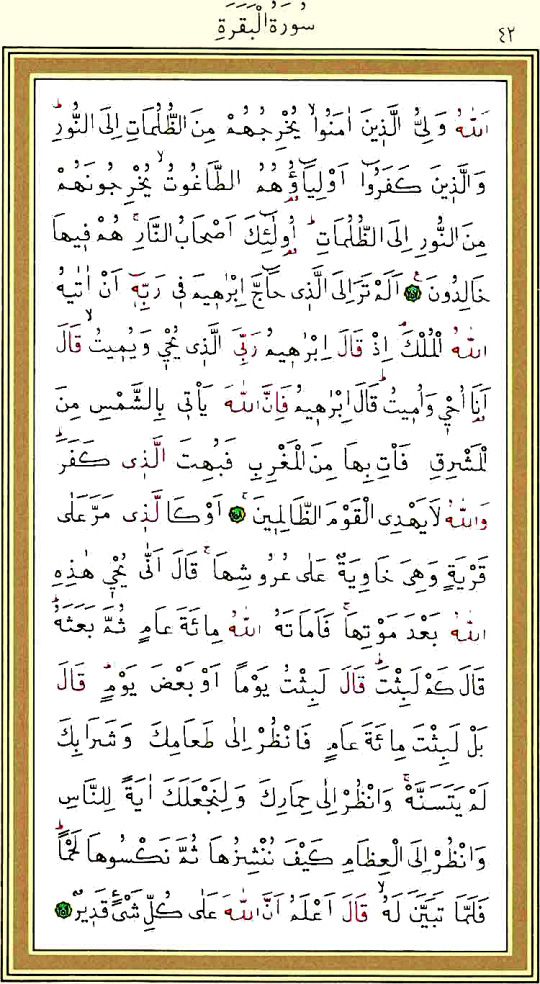 سُورَةُ الْبَقَرَةِ
٤٢
اَللّٰهُ وَلِيُّ الَّذ۪ينَ اٰمَنُواۙ يُخْرِجُهُمْ مِنَ الظُّلُمَاتِ اِلَى النُّورِۜ
وَالَّذ۪ينَ كَفَرُٓوا اَوْلِيَٓاؤُ۬هُمُ الطَّاغُوتُۙ يُخْرِجُونَهُمْ
مِنَ النُّورِ اِلَى الظُّلُمَاتِۜ اُو۬لٰٓئِكَ اَصْحَابُ النَّارِۚ هُمْ ف۪يهَا
خَالِدُونَ۟ ﴿٢٥٧﴾ اَلَمْ تَرَ اِلَى الَّذ۪ي حَٓاجَّ اِبْرٰه۪يمَ ف۪ي رَبِّه۪ٓ اَنْ اٰتٰيهُ
اللّٰهُ الْمُلْكَۢ اِذْ قَالَ اِبْرٰه۪يمُ رَبِّيَ الَّذ۪ي يُحْي۪ وَيُم۪يتُۙ قَالَ
اَنَا۬ اُحْي۪ وَاُم۪يتُۜ قَالَ اِبْرٰه۪يمُ فَاِنَّ اللّٰهَ يَأْت۪ي بِالشَّمْسِ مِنَ
الْمَشْرِقِ فَأْتِ بِهَا مِنَ الْمَغْرِبِ فَبُهِتَ الَّذ۪ي كَفَرَۜ
وَاللّٰهُ لَا يَهْدِي الْقَوْمَ الظَّالِم۪ينَۚ ﴿٢٥٨﴾ اَوْ كَالَّذ۪ي مَرَّ عَلٰى
قَرْيَةٍ وَهِيَ خَاوِيَةٌ عَلٰى عُرُوشِهَاۚ قَالَ اَنّٰى يُحْي۪ هٰذِهِ
اللّٰهُ بَعْدَ مَوْتِهَاۚ فَاَمَاتَهُ اللّٰهُ مِائَةَ عَامٍ ثُمَّ بَعَثَهُۜ
قَالَ كَمْ لَبِثْتَۜ قَالَ لَبِثْتُ يَوْماً اَوْ بَعْضَ يَوْمٍۜ قَالَ
بَلْ لَبِثْتَ مِائَةَ عَامٍ فَانْظُرْ اِلٰى طَعَامِكَ وَشَرَابِكَ
لَمْ يَتَسَنَّهْۚ وَانْظُرْ اِلٰى حِمَارِكَ وَلِنَجْعَلَكَ اٰيَةً لِلنَّاسِ
وَانْظُرْ اِلَى الْعِظَامِ كَيْفَ نُنْشِزُهَا ثُمَّ نَكْسُوهَا لَحْماًۜ
فَلَمَّا تَبَيَّنَ لَهُۙ قَالَ اَعْلَمُ اَنَّ اللّٰهَ عَلٰى كُلِّ شَيْءٍ قَد۪يرٌ ﴿٢٥٩﴾